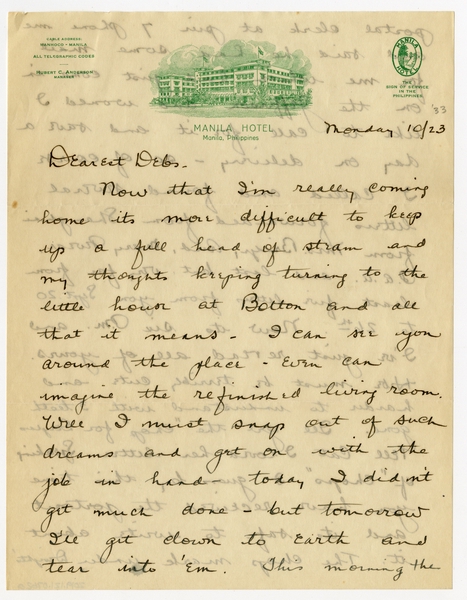 CABLE ADDRESS,
MANHOCO - MANILA
ALL TELEGRAPHIC CODES
HUBERT C. ANDERSON
MANAGER
MANILA
HOTEL
THE
SIGN OF SERVICE
IN THE
PHILIPPINES
MANILA HOTEL
Manila, Philippines
'33
Monday 10/23
Dearest Debs.
Now that I'm really coming
home its more difficult to keep
up a full head of steam and
my thoughts keeping turning to the
little house at Bolton and all
that it means - I can see you
around the place - Even can
imagine the refinished living room.
Well I must snap out of such
dreams and get on with the
job in hand - today I didn't
get much done - but tomorrow
I'll get down to Earth and
tear into 'Em. This morning the